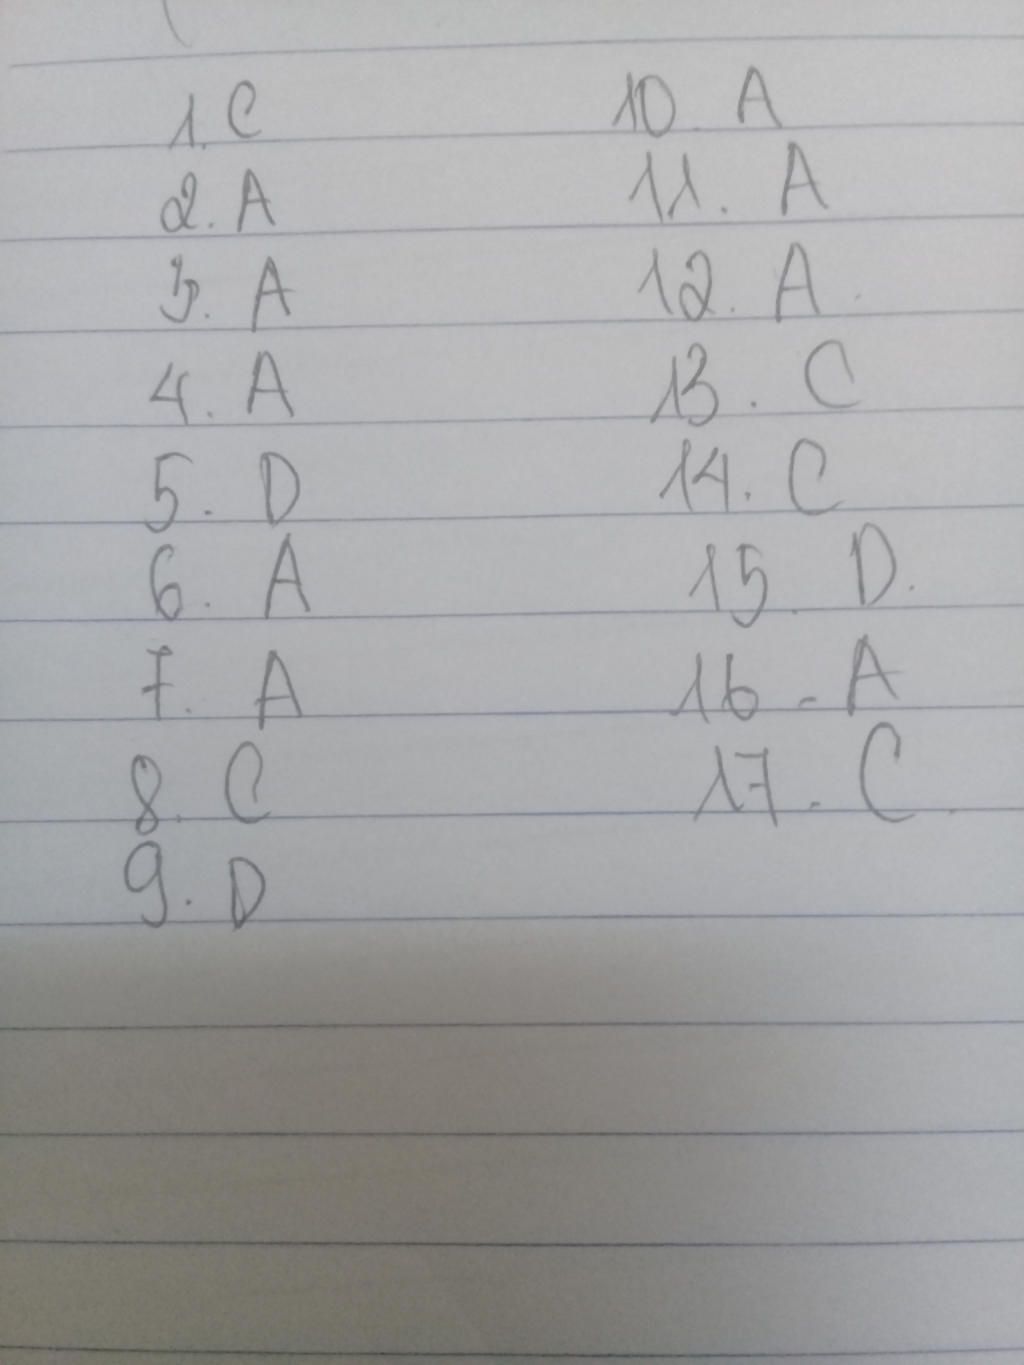 1. C
2. A
3. A
4. A
5. D
6. A
7. A
8. C
9. D
10. A
11. A
12. A.
13. C
14. C
15. D.
16 - A
17. C.